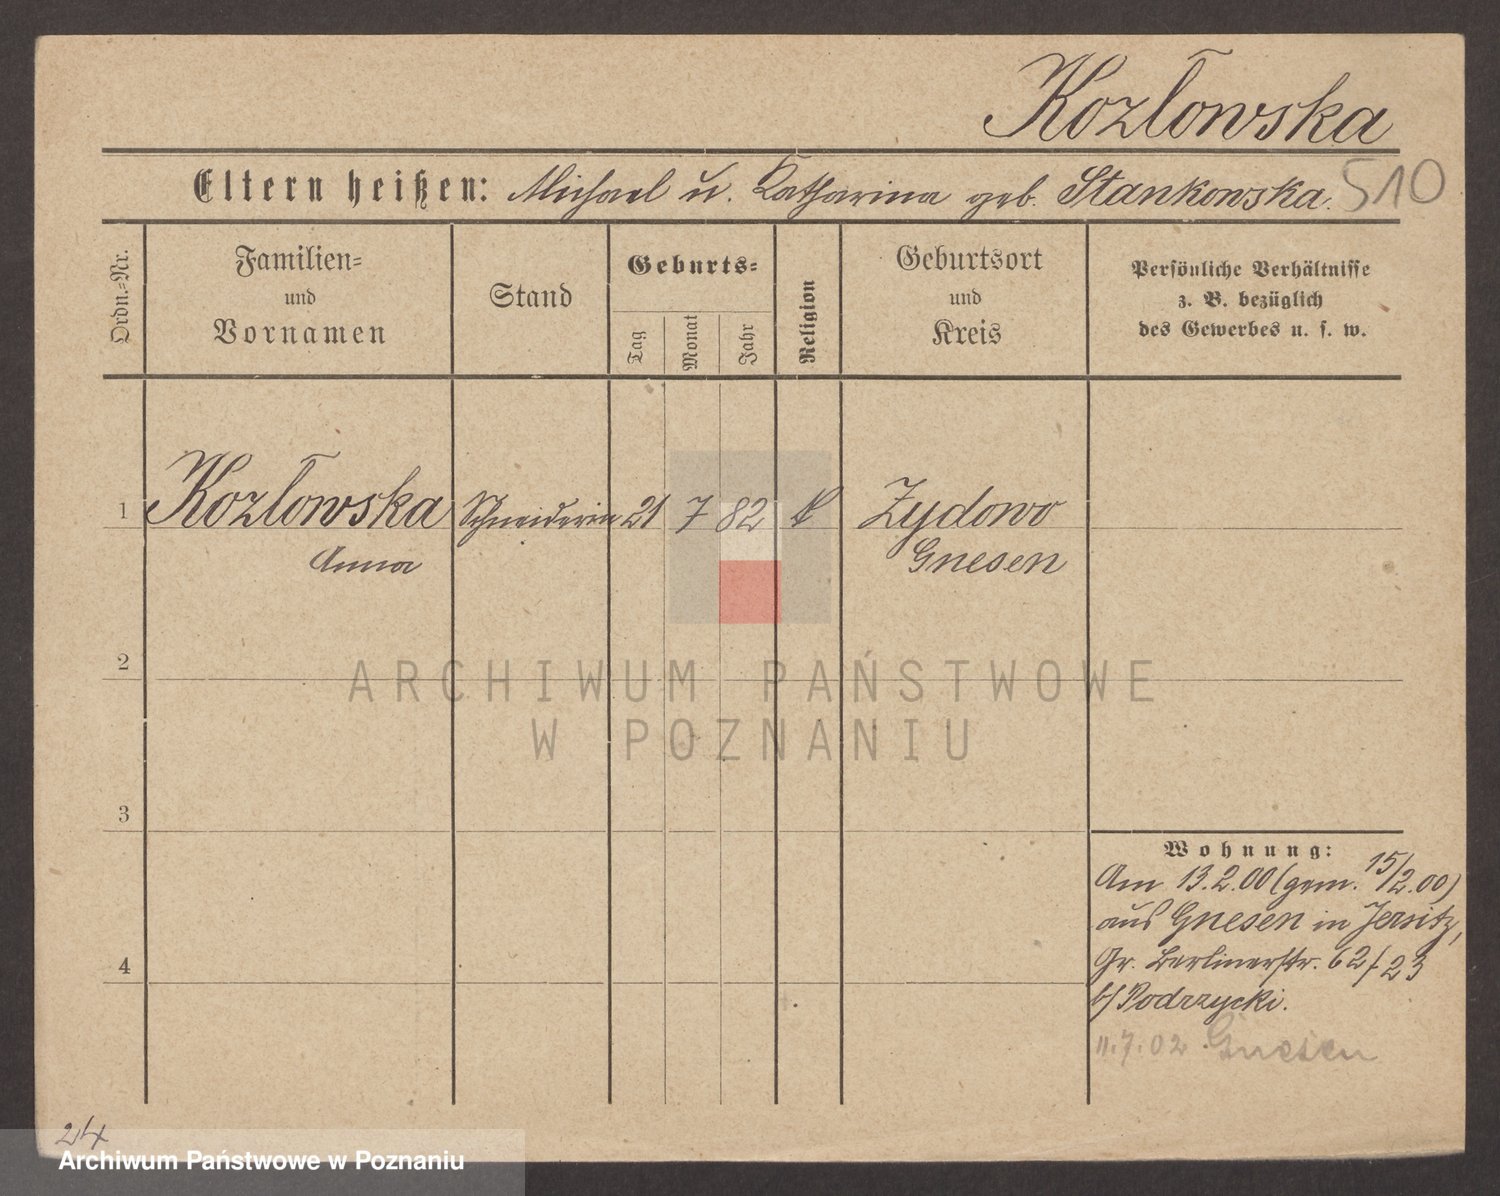 Kozłowska
Eltern heißen: Michael u. Katharina geb. Stankowska. 510
Ordn.-Nr.
Familien-
und
Vornamen
Stand
Geburts-
Tag
Monat
Jahr
Religion
Geburtsort
und
Kreis
Persönliche Verhältnisse
z. B. bezüglich
des Gewerbes u. s. w.
1 Kozłowska Schneiderin 21 7 82 k Zydowo
Anna Gnesen
2
ARCHIWUM PAŃSTWOWE
W POZNANIU
3
Wohnung:
Am 13.2.00 (gem. 15/2.00)
aus Gnesen in Jersitz,
Gr. Berlinerstr. 62/23
4
b/ Podrzycki.
11.7.02 Gnesen
24
Archiwum Państwowe w Poznaniu